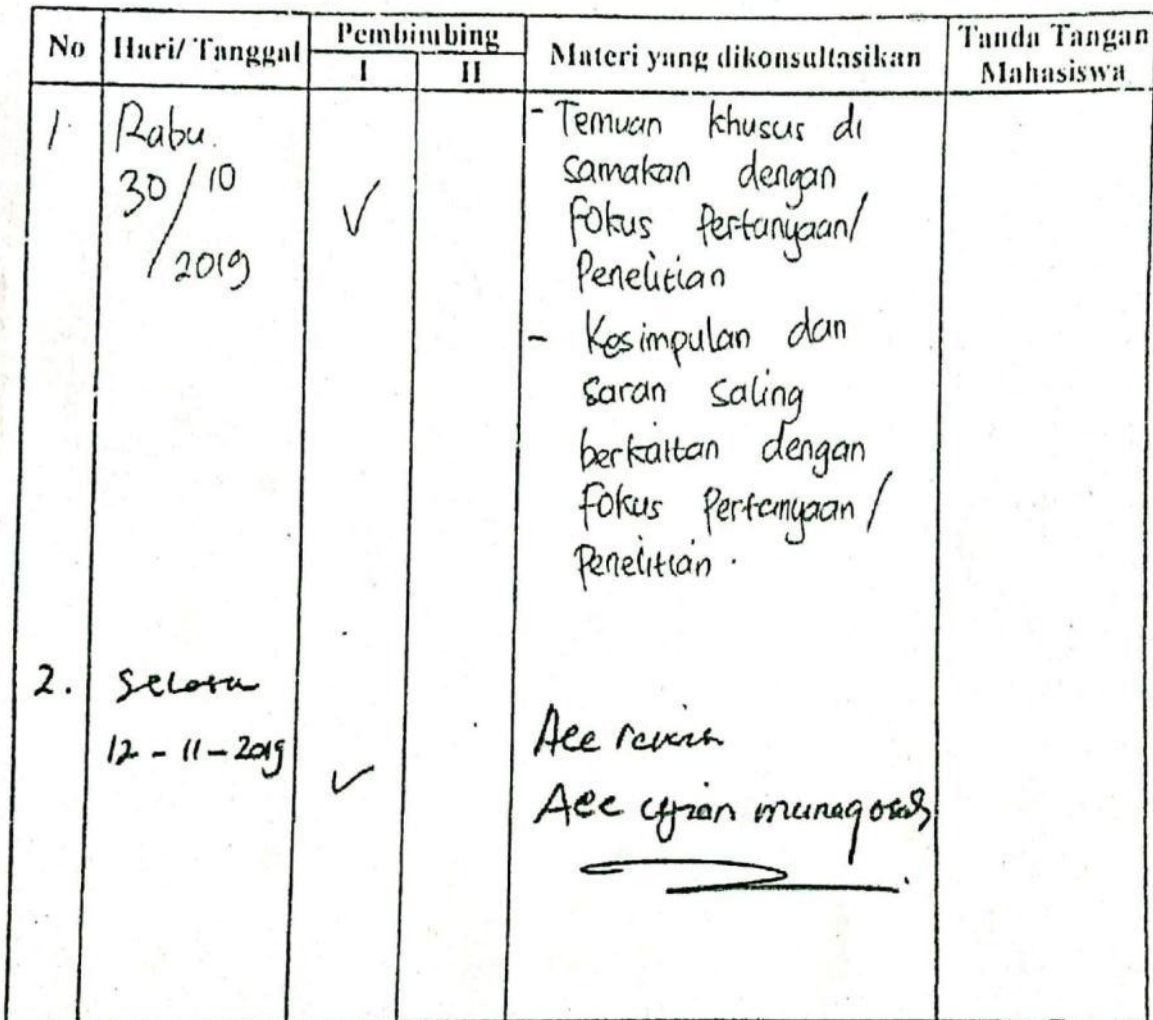 No Hari/ Tanggal Pembimbing Materi yang dikonsultasikan Tanda Tangan
I II Mahasiswa
1. Rabu. - Temuan khusus di
30/10 √ samakan dengan
/2019 Fokus Pertanyaan/
Penelitian
- Kesimpulan dan
saran saling
berkaitan dengan
Fokus Pertanyaan/
Penelitian.
2. Selasa
12-11-2019 √ Acc revisi
Acc ujian munaqosah